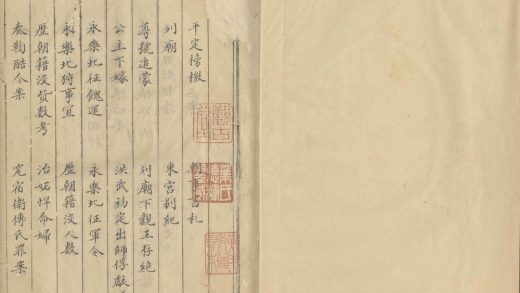 平定榜檄　事書札
列廟　東宮別紀
尊號追蒙　列廟下親王存絕
公主下嫁　洪武初定出師俘獻
永樂北征餽運　永樂北征軍令
永樂北狩事宜　歷朝籍沒人數
歷朝籍沒貲數考　治妬悍命婦
泰勅酷令案　宿衛傅氏罪案